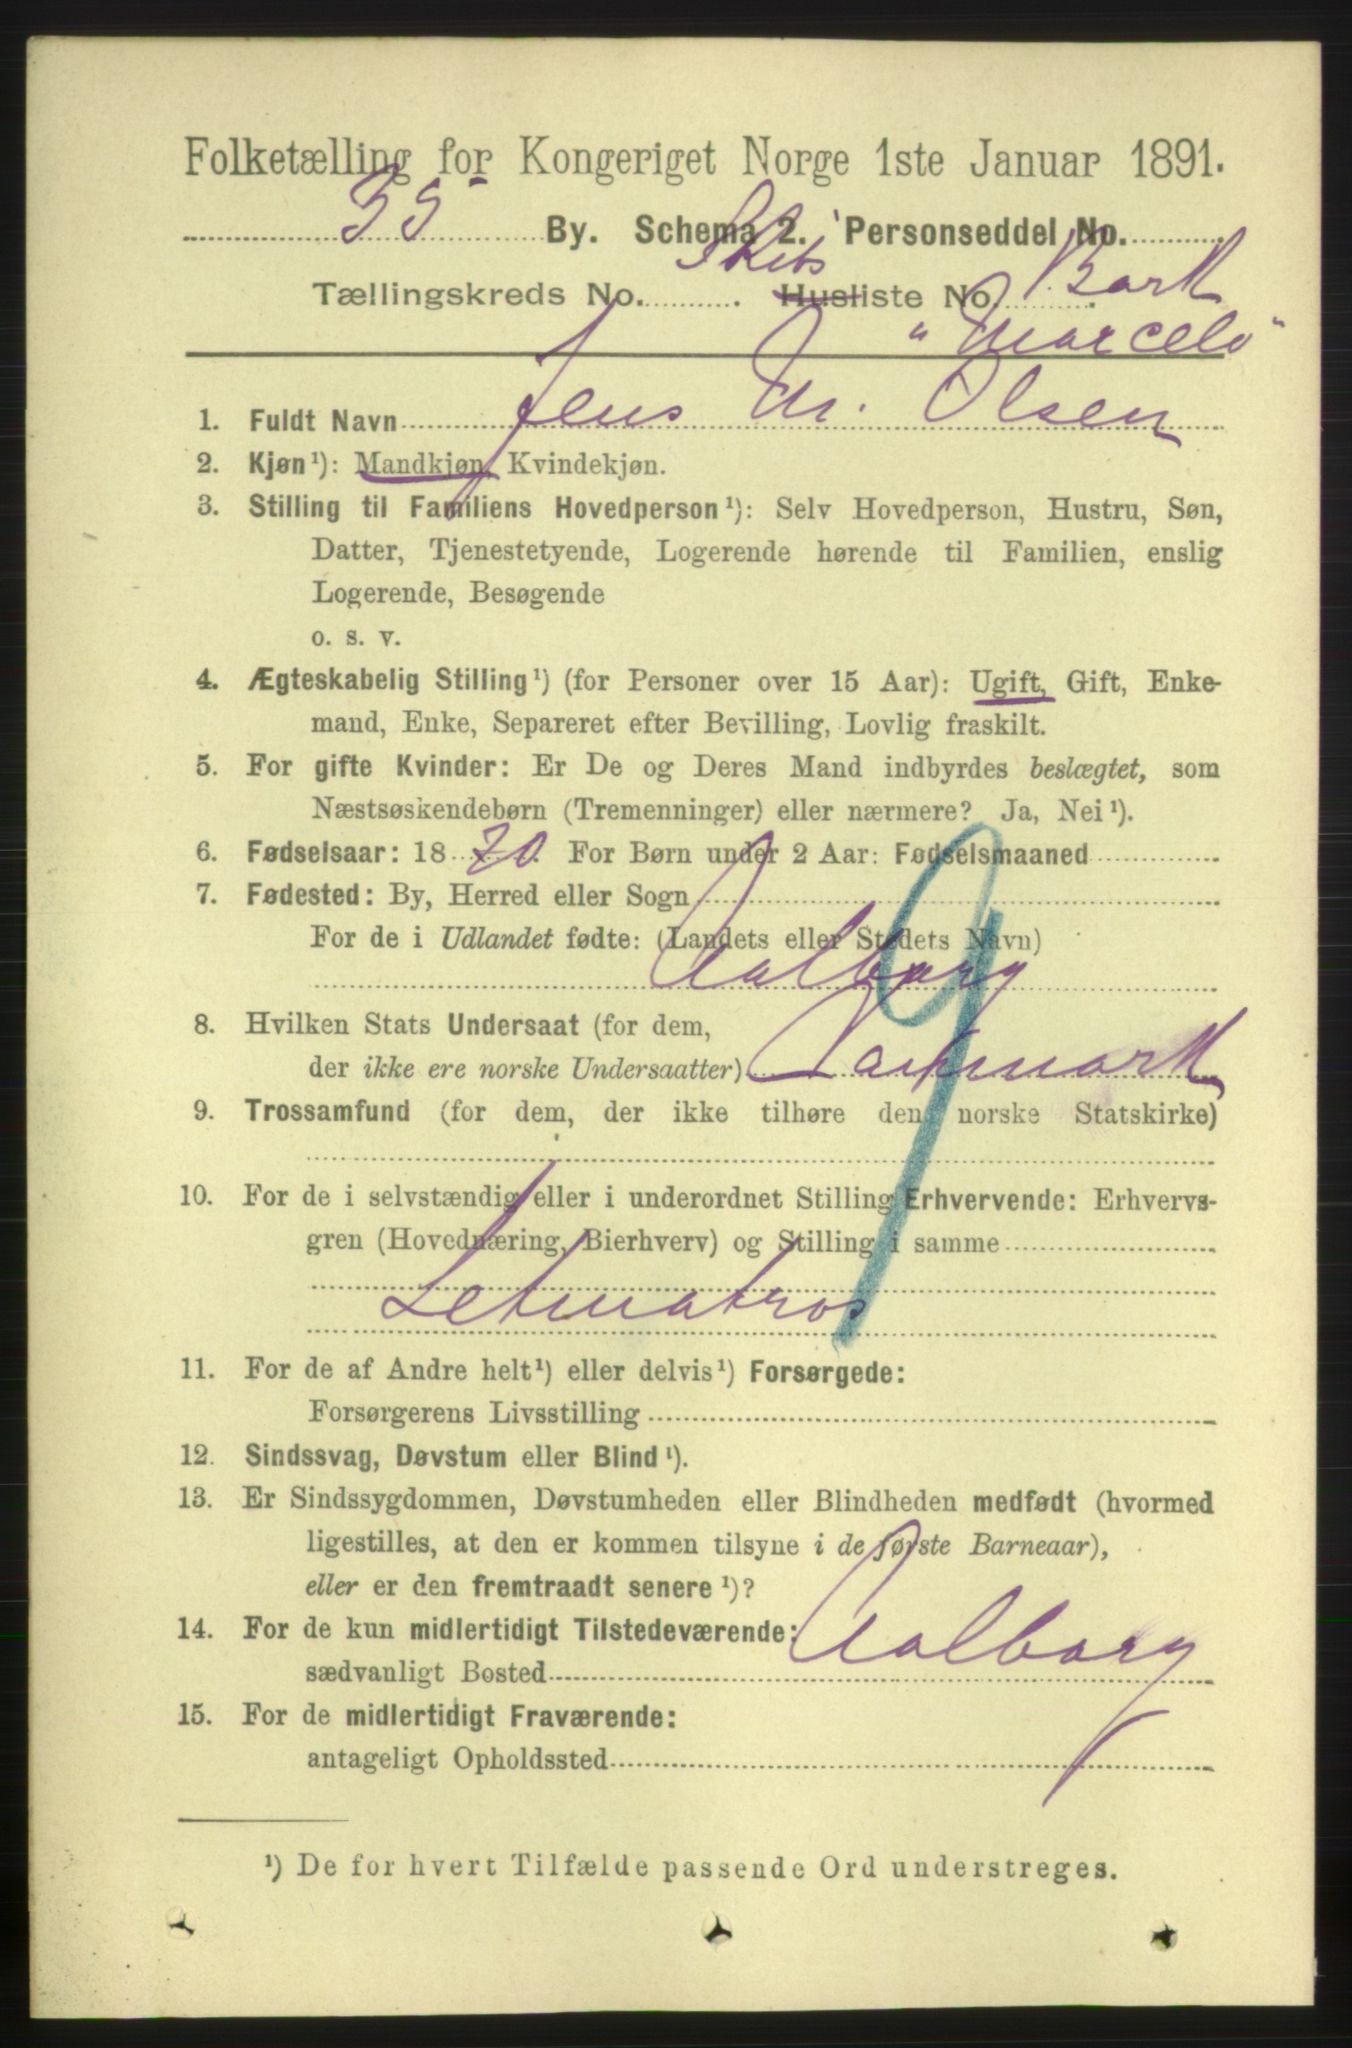 Folketælling for Kongeriget Norge 1ste Januar 1891.
35 By. Schema 2. Personseddel No.
Tællingskreds No. Skibs Husliste No. Bark
"Marcelo"
1. Fuldt Navn Jens M. Olsen
2. Kjøn¹): Mandkjøn, Kvindekjøn.
3. Stilling til Familiens Hovedperson¹): Selv Hovedperson, Hustru, Søn,
Datter, Tjenestetyende, Logerende hørende til Familien, enslig
Logerende, Besøgende
o. s. v.
4. Ægteskabelig Stilling¹) (for Personer over 15 Aar): Ugift, Gift, Enke-
mand, Enke, Separeret efter Bevilling, Lovlig fraskilt.
5. For gifte Kvinder: Er De og Deres Mand indbyrdes beslægtet, som
Næstsøskendebørn (Tremenninger) eller nærmere? Ja, Nei¹).
6. Fødselsaar: 1870. For Børn under 2 Aar: Fødselsmaaned
7. Fødested: By, Herred eller Sogn
For de i Udlandet fødte: (Landets eller Stedets Navn)
Aalborg
8. Hvilken Stats Undersaat (for dem,
der ikke ere norske Undersaatter) Danmark
9. Trossamfund (for dem, der ikke tilhøre den norske Statskirke)
10. For de i selvstændig eller i underordnet Stilling Erhvervende: Erhvervs-
gren (Hovednæring, Bierhverv) og Stilling i samme
Letmatros
9
11. For de af Andre helt¹) eller delvis¹) Forsørgede:
Forsørgerens Livsstilling
12. Sindssvag, Døvstum eller Blind¹).
13. Er Sindssygdommen, Døvstumheden eller Blindheden medfødt (hvormed
ligestilles, at den er kommen tilsyne i de første Barneaar),
eller er den fremtraadt senere¹)?
14. For de kun midlertidigt Tilstedeværende:
sædvanligt Bosted Aalborg
15. For de midlertidigt Fraværende:
antageligt Opholdssted
¹) De for hvert Tilfælde passende Ord understreges.